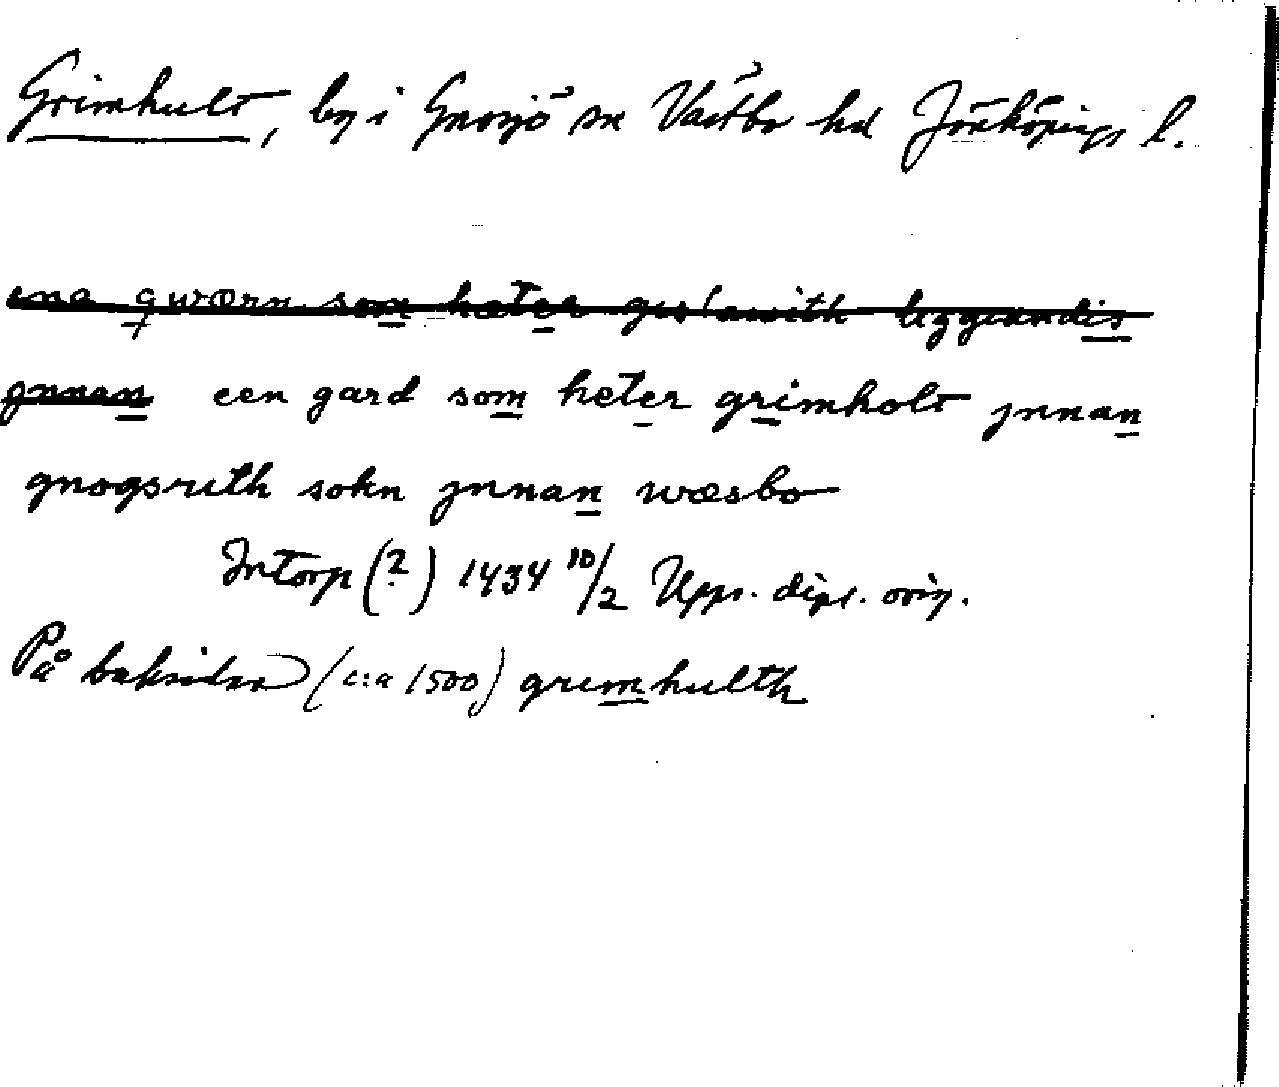 Grimhult, by i Gnosjö sn Västbo hd Jönköpings l.
ena qwærn som heter liggiandis
jnnan een gard som heter grimholt jnnan
gnogsryth sokn jnnan wæsbo
Intorp (?) 1434 10/2 Upps. dipl. orig.
På baksidan (c:a 1500) grimhulth